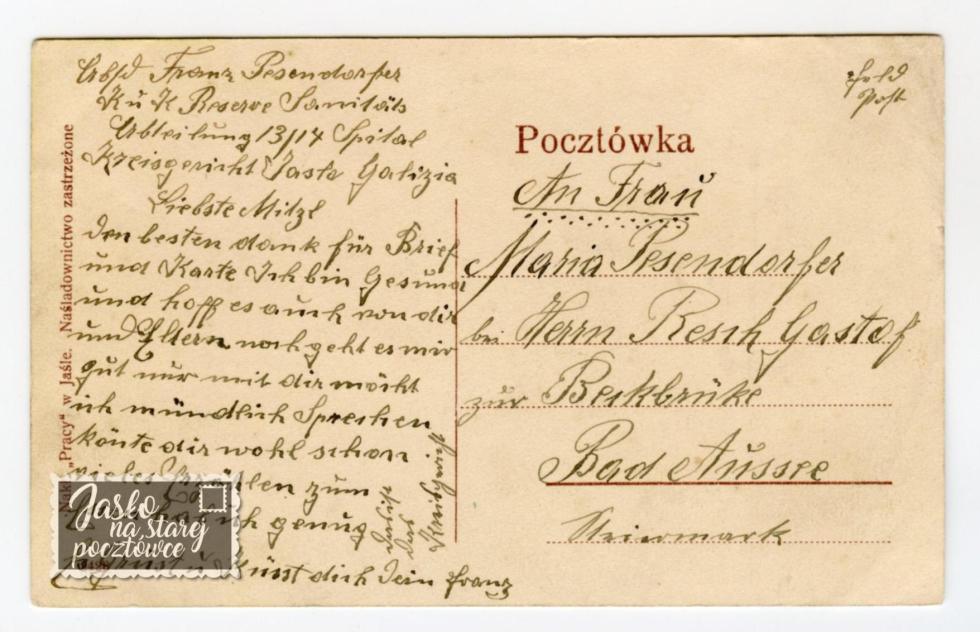 Franz Pesendorfer
K u K Reserve Sanitäts
Abteilung 13/14 Spital
Kreisgericht Jaslo Galizia
Liebste Mitzl
den besten dank für Brief
und Karte Ich bin Gesund
und hoff es auch von dir
und Eltern noch geht es mir
gut nur mit dir möcht
ich mündlich Sprechen
könte dir wohl schon
vieles Erzählen zum
ich genug
Grüst u Küsst dich Dein Franz
das
Feld
Post
Pocztówka
An Frau
Maria Pesendorfer
bei Herrn Resch Gasthof
zur Beckbrüke
Bad Aussee
Steiermark
"Pracy" w Jaśle. Naśladownictwo zastrzeżone
Jasło
na starej
pocztówce